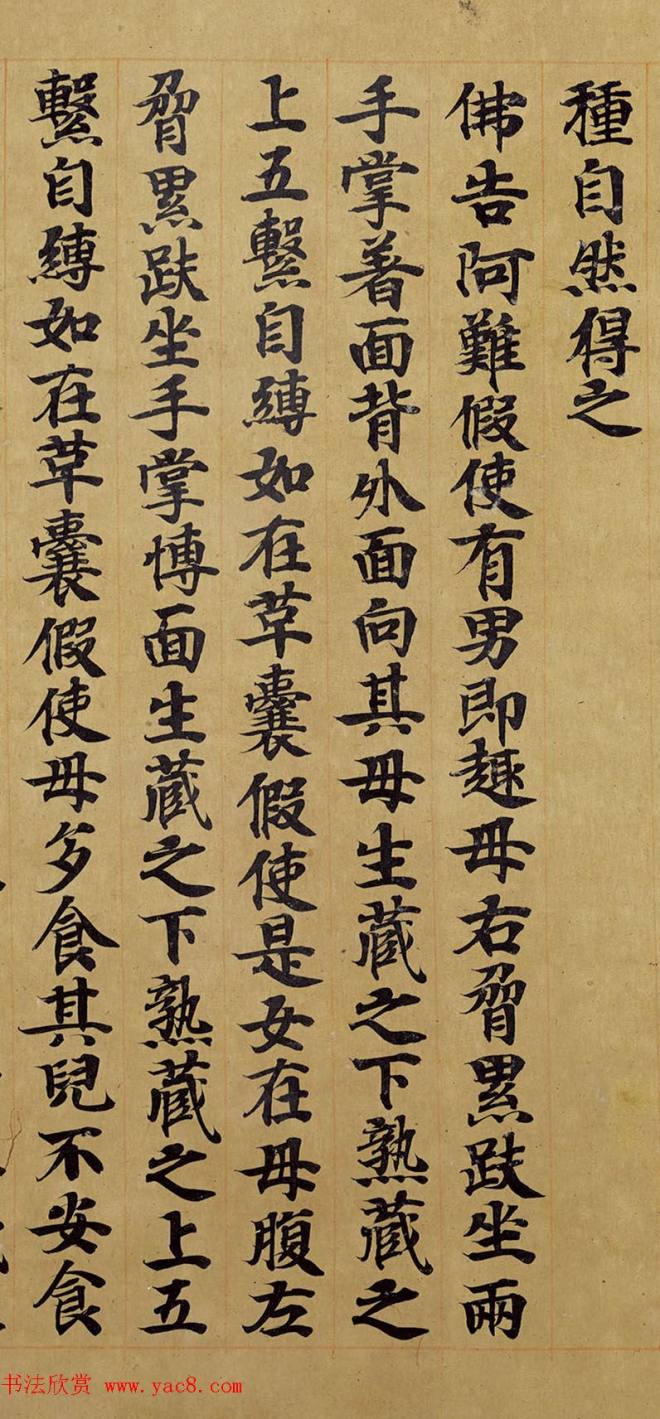 種自然得之
佛告阿難假使有男即趣母右脅累趺坐兩
手掌著面背外面向其母生藏之下熟藏之
上五繫自縛如在草囊假使是女在母腹左
脅累趺坐手掌博面生藏之下熟藏之上五
繫自縛如在草囊假使母多食其兒不安食
书法欣赏 www.yac8.com